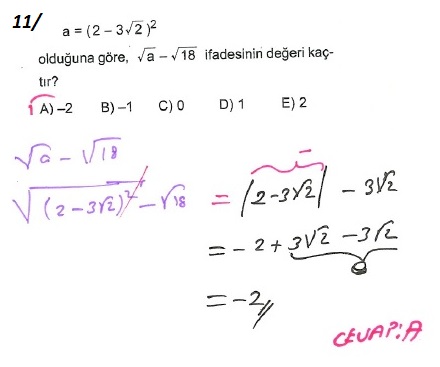 11/
a = (2 – 3√2)²
olduğuna göre, √a – √18 ifadesinin değeri kaç-
tır?
A) –2 B) –1 C) 0 D) 1 E) 2
√a – √18
√(2 – 3√2)² – √18 = |2 – 3√2| – 3√2
–
= – 2 + 3√2 – 3√2
0
= –2//
CEVAP: A